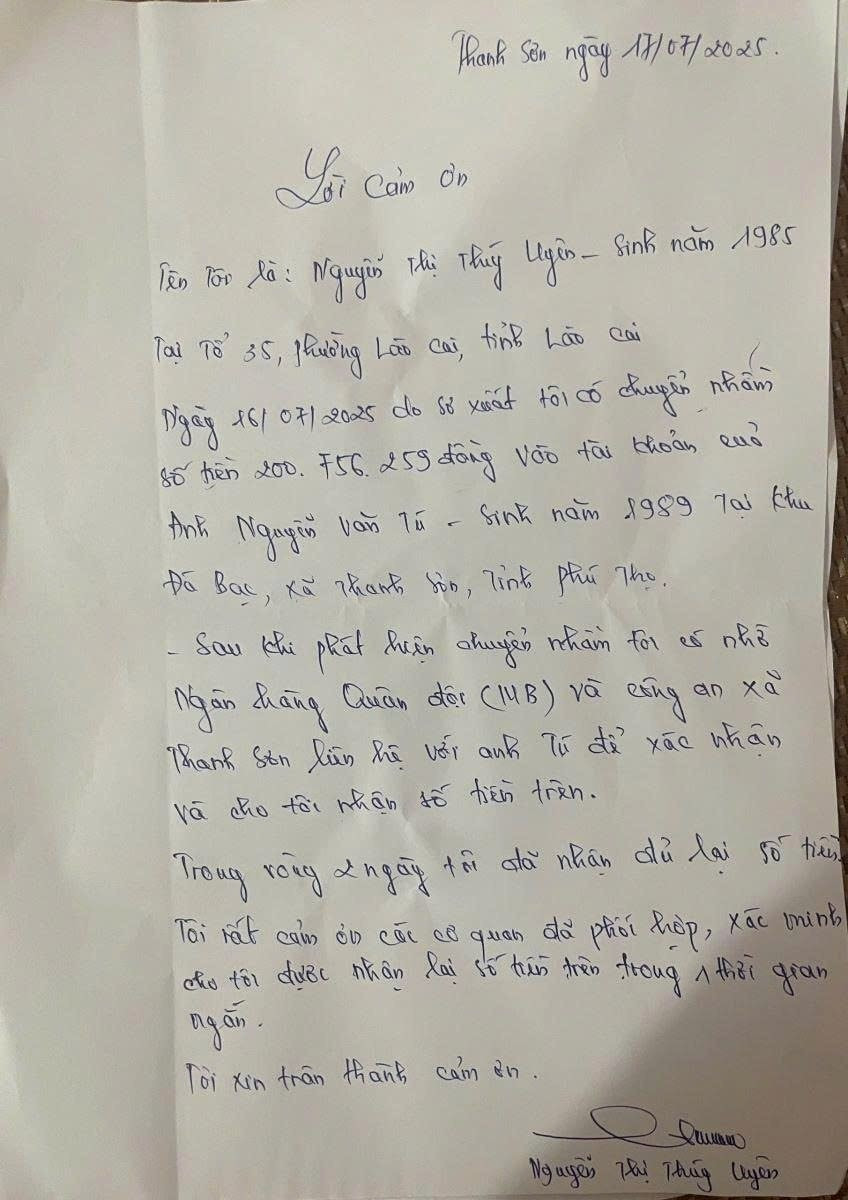 Thanh Sơn ngày 17/07/2025.
Lời Cảm Ơn
Tên Tôi là: Nguyễn Thị Thúy Uyên - Sinh năm 1985
Tại Tổ 35, phường Lào Cai, tỉnh Lào Cai
Ngày 16/07/2025 do sơ xuất tôi có chuyển nhầm
số tiền 200.756.259 đồng vào tài khoản của
Anh Nguyễn Văn Tú - Sinh năm 1989 Tại Khu
Đá Bạc, xã Thanh Sơn, Tỉnh Phú Thọ.
- Sau khi phát hiện chuyển nhầm tôi có nhờ
Ngân hàng Quân đội (MB) và công an xã
Thanh Sơn liên hệ với anh Tú để xác nhận
và cho tôi nhận số tiền trên.
Trong vòng 2 ngày tôi đã nhận đủ lại số tiền
Tôi rất cảm ơn các cơ quan đã phối hợp, xác minh
cho tôi được nhận lại số tiền trên trong 1 thời gian
ngắn.
Tôi xin trân thành cảm ơn.
Nguyễn Thị Thúy Uyên